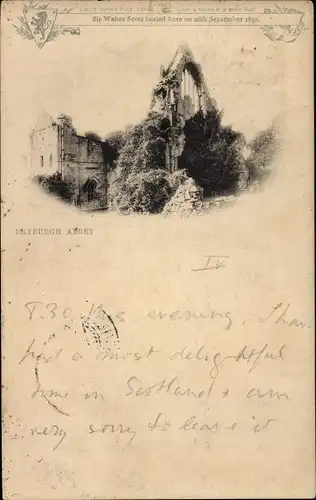 Sir Walter Scott buried here on 26th September 1832.
DRYBURGH ABBEY
IV
7.30 this evening. I have
had a most delightful
time in Scotland & am
very sorry to leave it